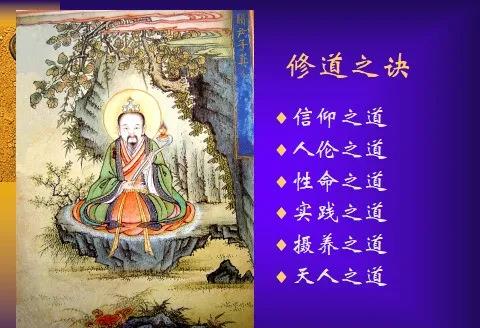 修道之诀
信仰之道
人伦之道
性命之道
实践之道
摄养之道
天人之道